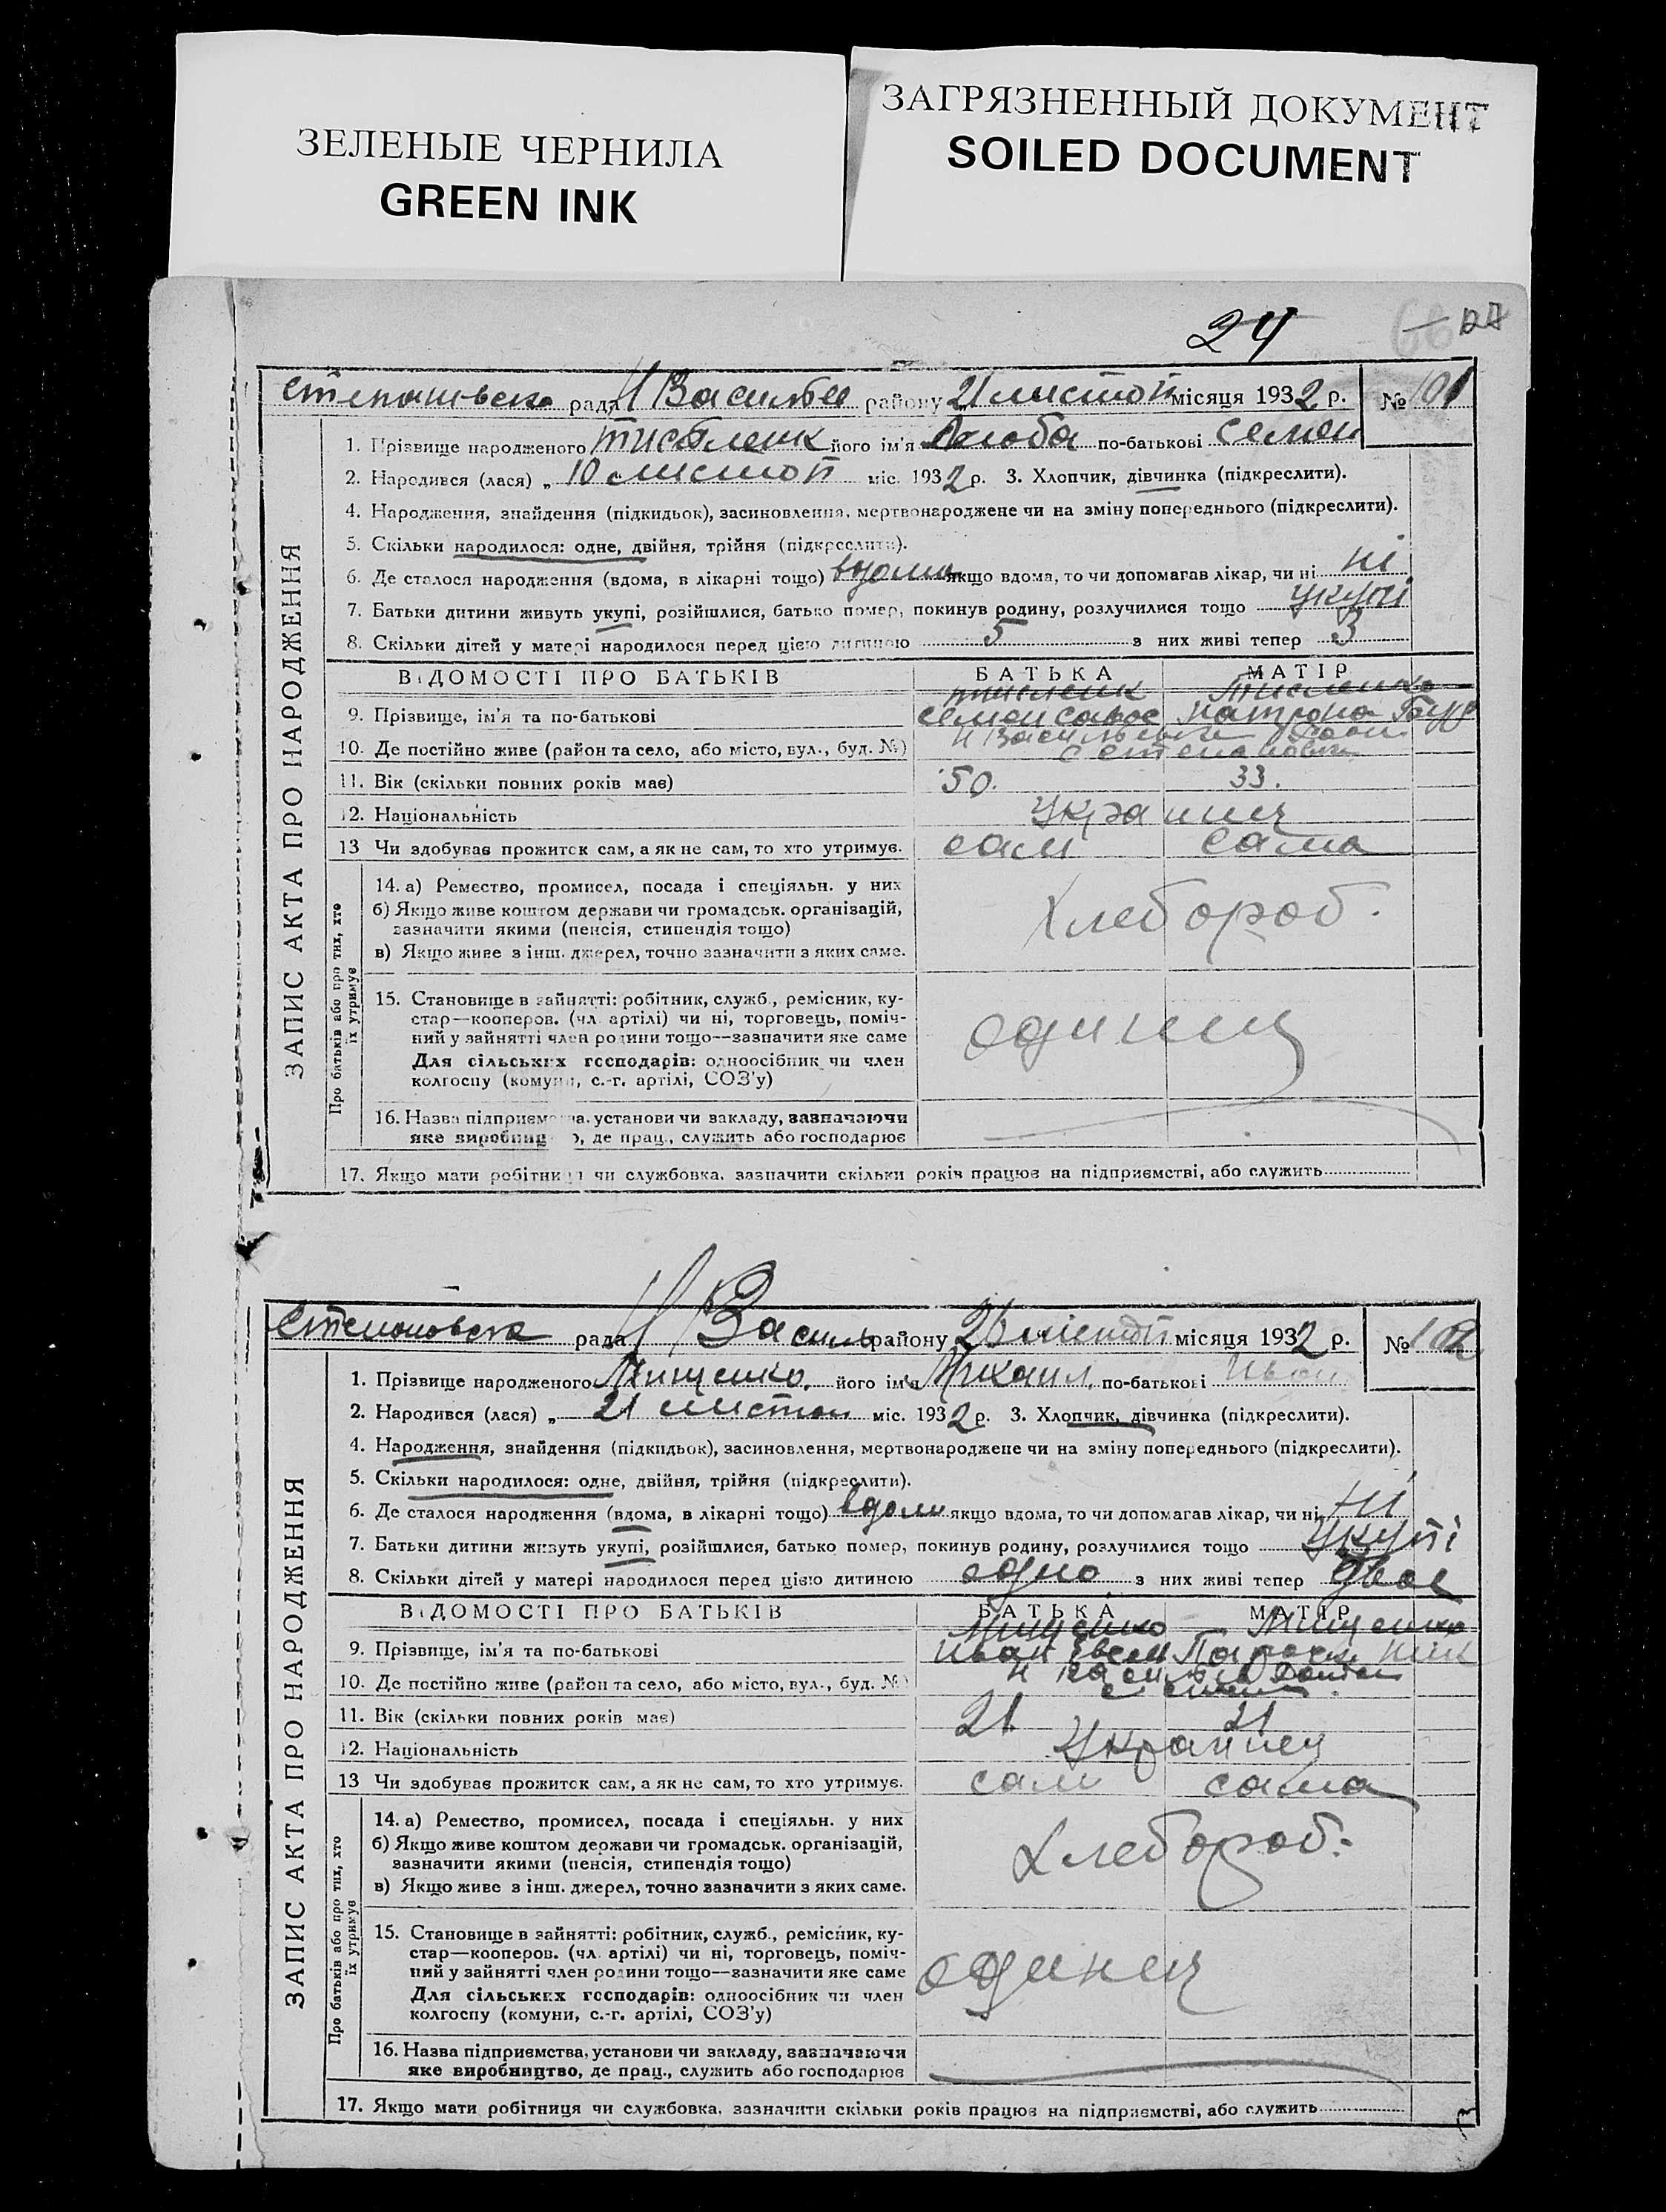 ЗЕЛЕНЫЕ ЧЕРНИЛА
GREEN INK
ЗАГРЯЗНЕННЫЙ ДОКУМЕНТ
SOILED DOCUMENT
24
рада Н Василье району „21 листоп місяця 1932 р. № 101
ЗАПИС АКТА ПРО НАРОДЖЕННЯ
1. Прізвище народженого його ім'я Люба по-батькові Семен
2. Народився (лася) „ 10 листоп міс. 1932 р. 3. Хлопчик, дівчинка (підкреслити).
4. Народження, знайдення (підкидьок), засиновлення, мертвонароджене чи на зміну попереднього (підкреслити).
5. Скільки народилося: одне, двійня, трійня (підкреслити).
6. Де сталося народження (вдома, в лікарні тощо) вдома якщо вдома, то чи допомагав лікар, чи ні ні
7. Батьки дитини живуть укупі, розійшлися, батько помер, покинув родину, розлучилися тощо укупі
8. Скільки дітей у матері народилося перед цією дитиною 5 з них живі тепер 3
ВІДОМОСТІ ПРО БАТЬКІВ БАТЬКА МАТІР
9. Прізвище, ім'я та по-батькові Семен
10. Де постійно живе (район та село, або місто, вул., буд. №)
11. Вік (скільки повних років має) 50. 33.
12. Національність Украинец
13 Чи здобував прожиток сам, а як не сам, то хто утримує. сам сама
Про батьків або про тих, хто їх утримує
14. а) Ремество, промисел, посада і спеціяльн. у них
б) Якщо живе коштом держави чи громадськ. організацій,
зазначити якими (пенсія, стипендія тощо)
в) Якщо живе з інш. джерел, точно зазначити з яких саме.
Хлебороб.
15. Становище в зайнятті: робітник, служб., ремісник, ку-
стар—кооперов. (чл. артілі) чи ні, торговець, поміч-
ний у зайнятті член родини тощо—зазначити яке саме
Для сільських господарів: одноосібник чи член
колгоспу (комуни, с.-г. артілі, СОЗ'у)
одинец
16. Назва підприємства, установи чи закладу, зазначаючи
яке виробництво, де прац., служить або господарює
17. Якщо мати робітниця чи службовка, зазначити скільки років працює на підприємстві, або служить
Степановска рада Н Василь району 26 листоп місяця 1932 р. № 102
ЗАПИС АКТА ПРО НАРОДЖЕННЯ
1. Прізвище народженого Мищенко його ім'я Михаил по-батькові Иван
2. Народився (лася) „ 21 листоп міс. 1932 р. 3. Хлопчик, дівчинка (підкреслити).
4. Народження, знайдення (підкидьок), засиновлення, мертвонароджене чи на зміну попереднього (підкреслити).
5. Скільки народилося: одне, двійня, трійня (підкреслити).
6. Де сталося народження (вдома, в лікарні тощо) вдома якщо вдома, то чи допомагав лікар, чи ні ні
7. Батьки дитини живуть укупі, розійшлися, батько помер, покинув родину, розлучилися тощо укупі
8. Скільки дітей у матері народилося перед цією дитиною одно з них живі тепер двое
ВІДОМОСТІ ПРО БАТЬКІВ БАТЬКА МАТІР
Мищенко Мищенко
9. Прізвище, ім'я та по-батькові Иван
10. Де постійно живе (район та село, або місто, вул., буд. №)
11. Вік (скільки повних років має) 21 21
12. Національність Украинец
13 Чи здобував прожиток сам, а як не сам, то хто утримує. сам сама
Про батьків або про тих, хто їх утримує
14. а) Ремество, промисел, посада і спеціяльн. у них
б) Якщо живе коштом держави чи громадськ. організацій,
зазначити якими (пенсія, стипендія тощо)
в) Якщо живе з інш. джерел, точно зазначити з яких саме.
Хлебороб.
15. Становище в зайнятті: робітник, служб., ремісник, ку-
стар—кооперов. (чл. артілі) чи ні, торговець, поміч-
ний у зайнятті член родини тощо—зазначити яке саме
Для сільських господарів: одноосібник чи член
колгоспу (комуни, с.-г. артілі, СОЗ'у)
одинец
16. Назва підприємства, установи чи закладу, зазначаючи
яке виробництво, де прац., служить або господарює
17. Якщо мати робітниця чи службовка, зазначити скільки років працює на підприємстві, або служить